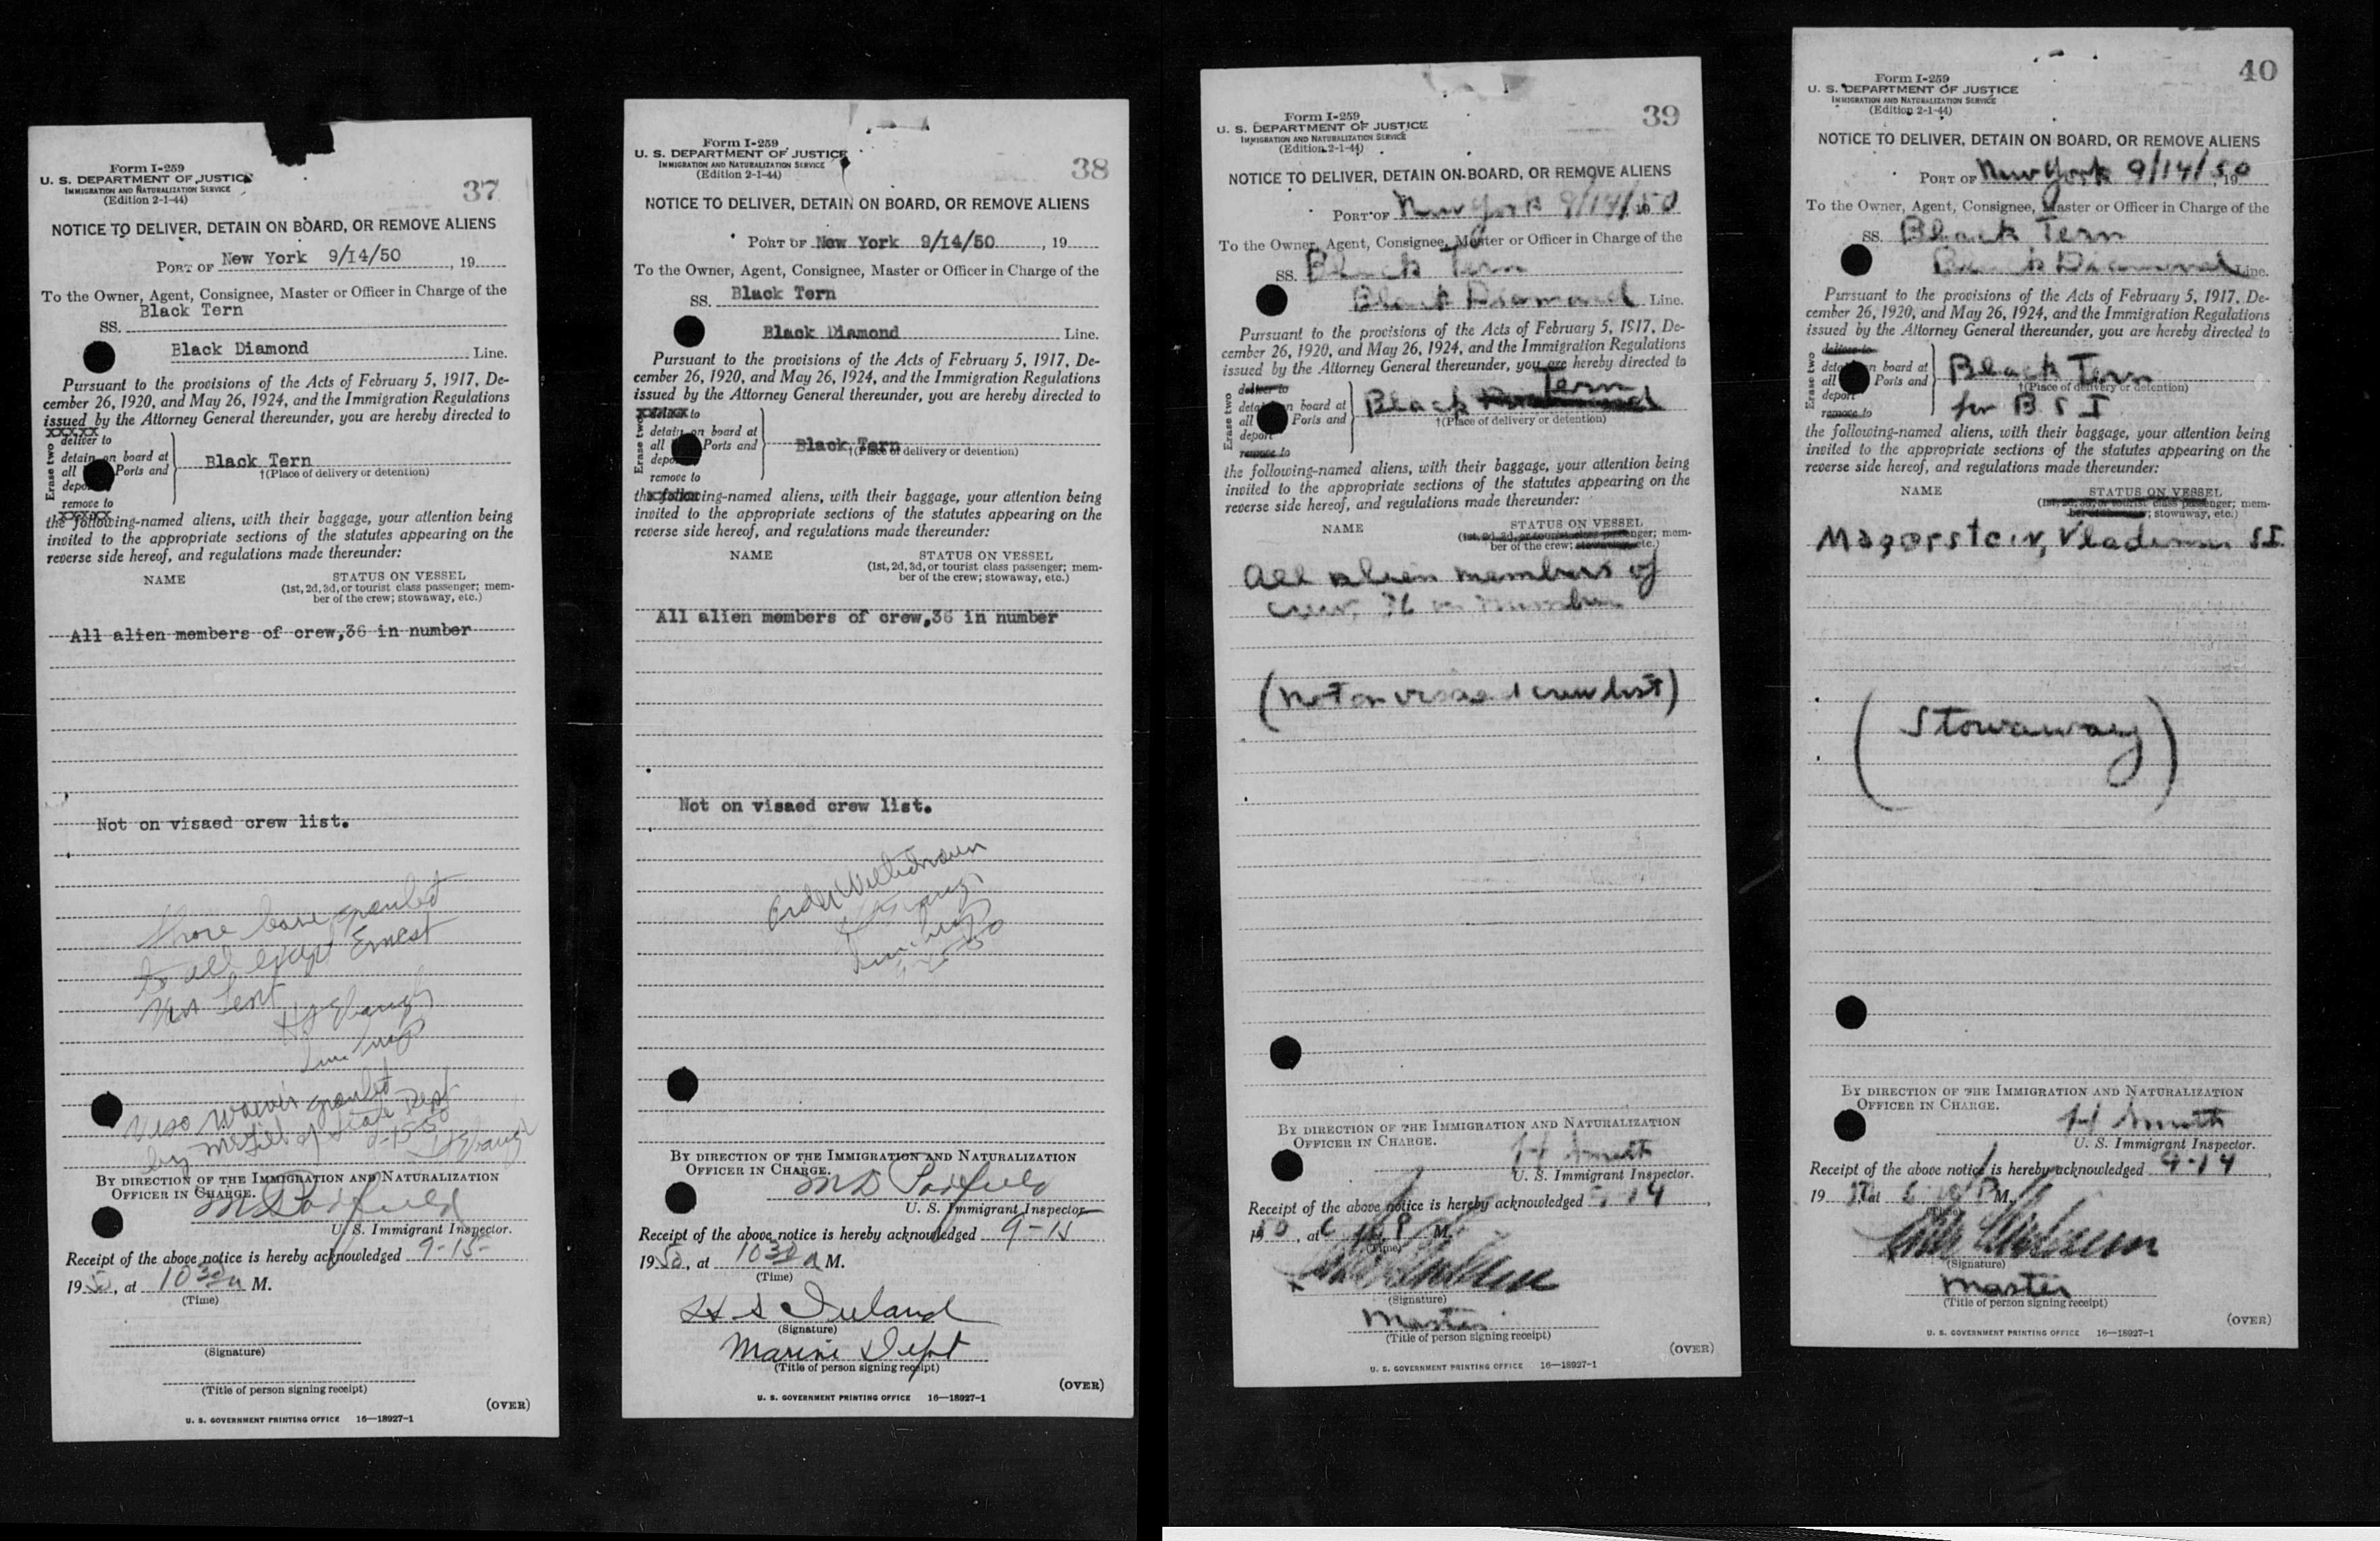 37
Form I-259
U. S. DEPARTMENT OF JUSTICE
IMMIGRATION AND NATURALIZATION SERVICE
(Edition 2-1-44)
NOTICE TO DELIVER, DETAIN ON BOARD, OR REMOVE ALIENS
PORT OF New York 9/14/50, 19
To the Owner, Agent, Consignee, Master or Officer in Charge of the
SS. Black Tern
Black Diamond Line.
Pursuant to the provisions of the Acts of February 5, 1917, De-
cember 26, 1920, and May 26, 1924, and the Immigration Regulations
issued by the Attorney General thereunder, you are hereby directed to
Erase two
xxxxx
deliver to
detain on board at
all Ports and
depo
remove to
xxxxx
Black Tern
†(Place of delivery or detention)
the following-named aliens, with their baggage, your attention being
invited to the appropriate sections of the statutes appearing on the
reverse side hereof, and regulations made thereunder:
NAME STATUS ON VESSEL
(1st, 2d, 3d, or tourist class passenger; mem-
ber of the crew; stowaway, etc.)
All alien members of crew,36 in number
Not on visaed crew list.
Shore leave granted
to all except Ernest
Van Lent
Visa waiver granted
by McGill of State Dept
9-15-50
BY DIRECTION OF THE IMMIGRATION AND NATURALIZATION
OFFICER IN CHARGE.
U. S. Immigrant Inspector.
Receipt of the above notice is hereby acknowledged 9-15-
1950, at 10 30 a M.
(Time)
(Signature)
(Title of person signing receipt)
(OVER)
U. S. GOVERNMENT PRINTING OFFICE 16—18927-1
38
Form I-259
U. S. DEPARTMENT OF JUSTICE
IMMIGRATION AND NATURALIZATION SERVICE
(Edition 2-1-44)
NOTICE TO DELIVER, DETAIN ON BOARD, OR REMOVE ALIENS
PORT OF New York 9/14/50, 19
To the Owner, Agent, Consignee, Master or Officer in Charge of the
SS. Black Tern
Black Diamond Line.
Pursuant to the provisions of the Acts of February 5, 1917, De-
cember 26, 1920, and May 26, 1924, and the Immigration Regulations
issued by the Attorney General thereunder, you are hereby directed to
Erase two
to
detain on board at
all Ports and
depo
remove to
Black Tern
†(Place of delivery or detention)
the following-named aliens, with their baggage, your attention being
invited to the appropriate sections of the statutes appearing on the
reverse side hereof, and regulations made thereunder:
NAME STATUS ON VESSEL
(1st, 2d, 3d, or tourist class passenger; mem-
ber of the crew; stowaway, etc.)
All alien members of crew,36 in number
Not on visaed crew list.
Order Withdrawn
BY DIRECTION OF THE IMMIGRATION AND NATURALIZATION
OFFICER IN CHARGE.
U. S. Immigrant Inspector.
Receipt of the above notice is hereby acknowledged 9-15
1950, at 10 30 a M.
(Time)
H S Ireland
(Signature)
Marine Dept
(Title of person signing receipt)
(OVER)
U. S. GOVERNMENT PRINTING OFFICE 16—18927-1
39
Form I-259
U. S. DEPARTMENT OF JUSTICE
IMMIGRATION AND NATURALIZATION SERVICE
(Edition 2-1-44)
NOTICE TO DELIVER, DETAIN ON BOARD, OR REMOVE ALIENS
PORT OF New York 9/14/50
To the Owner, Agent, Consignee, Master or Officer in Charge of the
SS. Black Tern
Black Diamond Line.
Pursuant to the provisions of the Acts of February 5, 1917, De-
cember 26, 1920, and May 26, 1924, and the Immigration Regulations
issued by the Attorney General thereunder, you are hereby directed to
Erase two
deliver to
detain on board at
all Ports and
deport
remove to
Black Tern
†(Place of delivery or detention)
the following-named aliens, with their baggage, your attention being
invited to the appropriate sections of the statutes appearing on the
reverse side hereof, and regulations made thereunder:
NAME STATUS ON VESSEL
(1st, 2d, 3d, or tourist class passenger; mem-
ber of the crew; stowaway, etc.)
All alien members of
crew, 36 in number
(Not on visaed crew list)
BY DIRECTION OF THE IMMIGRATION AND NATURALIZATION
OFFICER IN CHARGE.
H Smith
U. S. Immigrant Inspector.
Receipt of the above notice is hereby acknowledged 14,
1950, at 6 P M.
(Time)
(Signature)
Master
(Title of person signing receipt)
(OVER)
U. S. GOVERNMENT PRINTING OFFICE 16—18927-1
40
Form I-259
U. S. DEPARTMENT OF JUSTICE
IMMIGRATION AND NATURALIZATION SERVICE
(Edition 2-1-44)
NOTICE TO DELIVER, DETAIN ON BOARD, OR REMOVE ALIENS
PORT OF New York 9/14/50, 19
To the Owner, Agent, Consignee, Master or Officer in Charge of the
SS. Black Tern
Black Diamond Line.
Pursuant to the provisions of the Acts of February 5, 1917, De-
cember 26, 1920, and May 26, 1924, and the Immigration Regulations
issued by the Attorney General thereunder, you are hereby directed to
Erase two
deliver to
detain on board at
all Ports and
deport
remove to
Black Tern
†(Place of delivery or detention)
for B S I
the following-named aliens, with their baggage, your attention being
invited to the appropriate sections of the statutes appearing on the
reverse side hereof, and regulations made thereunder:
NAME STATUS ON VESSEL
(1st, 2d, 3d, or tourist class passenger; mem-
ber of the crew; stowaway, etc.)
(Stowaway)
BY DIRECTION OF THE IMMIGRATION AND NATURALIZATION
OFFICER IN CHARGE.
H Smith
U. S. Immigrant Inspector.
Receipt of the above notice is hereby acknowledged 9-14,
19 at 6 P M.
(Signature)
Master
(Title of person signing receipt)
(OVER)
U. S. GOVERNMENT PRINTING OFFICE 16—18927-1